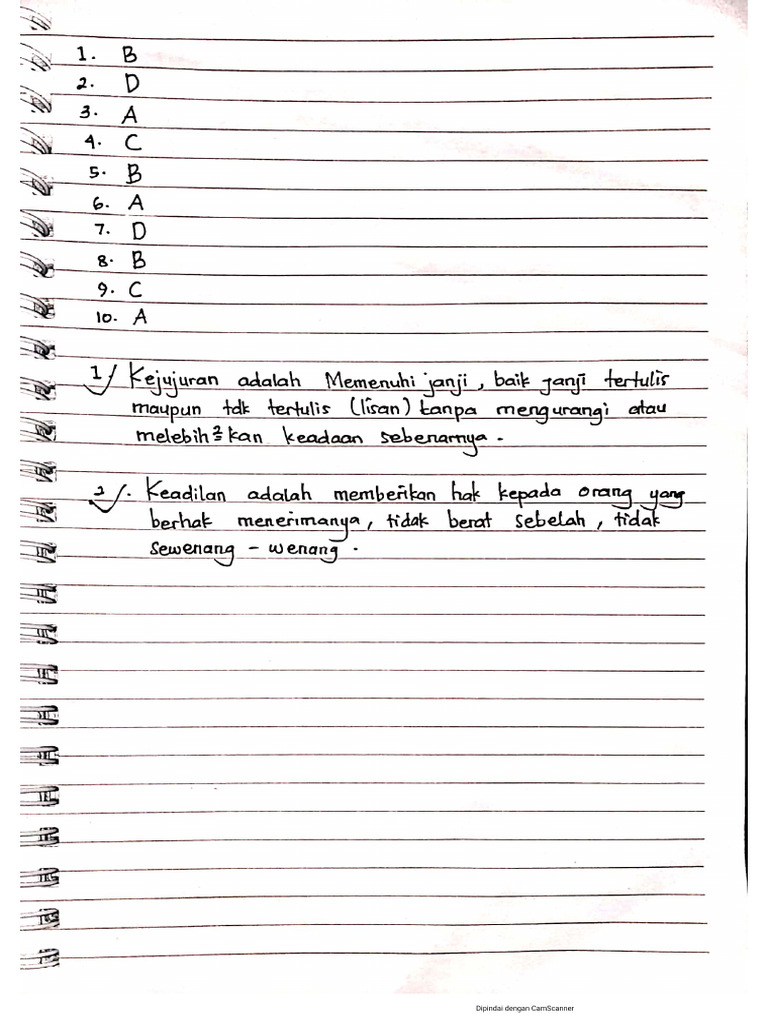 1. B
2. D
3. A
4. C
5. B
6. A
7. D
8. B
9. C
10. A
1/ Kejujuran adalah Memenuhi janji, baik janji tertulis
maupun tdk tertulis (lisan) tanpa mengurangi atau
melebih²kan keadaan sebenarnya.
2/. Keadilan adalah memberikan hak kepada orang yang
berhak menerimanya, tidak berat sebelah, tidak
sewenang - wenang.
Dipindai dengan CamScanner